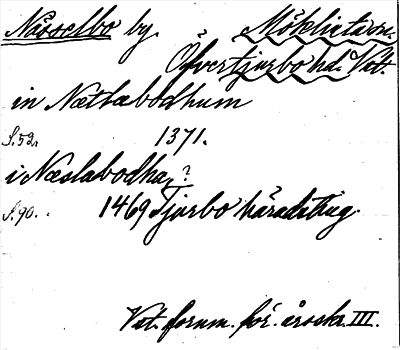 Nässelbo by. Möklinta sn.
Öfvertjurbo hd. Vst.
in Nætlabodhum
S. 52. 1371.
i Næslabodha ?
S. 90. 1469 Tjurbo häradsthing.
Vst. fornm. för. årsskr. III.